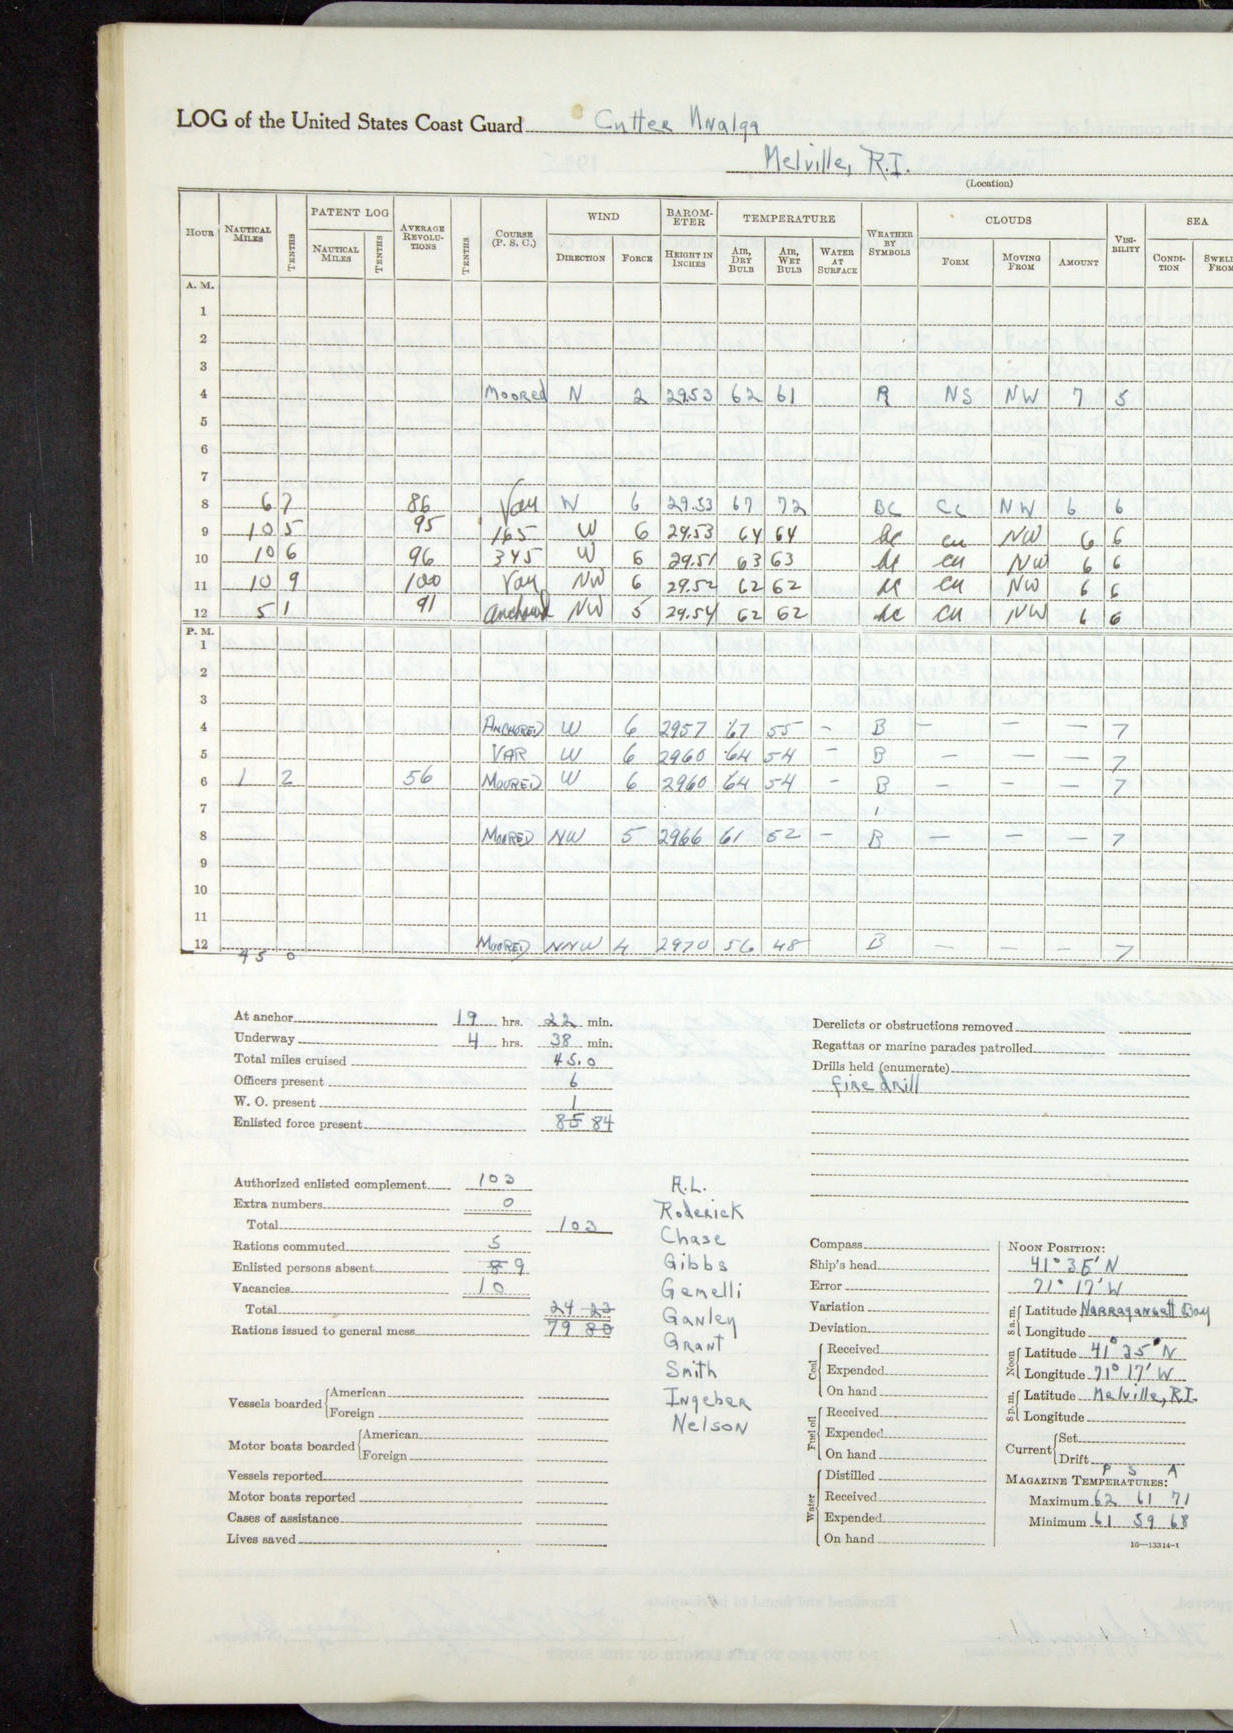 LOG of the United States Coast Guard Cutter Unalga
Melville, R.I.
(Location)
HOUR NAUTICAL MILES TENTHS PATENT LOG NAUTICAL MILES TENTHS AVERAGE REVOLUTIONS TENTHS COURSE (P. S. C.) WIND DIRECTION FORCE BAROMETER HEIGHT IN INCHES TEMPERATURE AIR, DRY BULB AIR, WET BULB WATER AT SURFACE WEATHER BY SYMBOLS CLOUDS FORM MOVING FROM AMOUNT VISIBILITY SEA CONDITION SWELL FROM
A. M.
1
2
3
4 Moored N 2 29.53 62 61 R NS NW 7 5
5
6
7
8 6 7 86 Var W 6 29.53 67 72 BC CC NW 6 6
9 10 5 95 165 W 6 29.53 64 64 bc cu NW 6 6
10 10 6 96 345 W 6 29.51 63 63 bc cu NW 6 6
11 10 9 100 Var NW 6 29.52 62 62 bc cu NW 6 6
12 5 1 91 anchored NW 5 29.54 62 62 bc cu NW 6 6
P. M.
1
2
3
4 ANCHORED W 6 2957 67 55 – B – – – 7
5 VAR W 6 2960 64 54 – B – – – 7
6 1 2 56 MOORED W 6 2960 64 54 – B – – – 7
7
8 MOORED NW 5 2966 61 52 – B – – – 7
9
10
11
12 MOORED NNW 4 2970 56 48 B – – – 7
45 0
At anchor 19 hrs. 22 min.
Underway 4 hrs. 38 min.
Total miles cruised 45.0
Officers present 6
W. O. present 1
Enlisted force present 85 84
Authorized enlisted complement 103
Extra numbers 0
Total 103
Rations commuted 5
Enlisted persons absent 8 9
Vacancies 10
Total 24 23
Rations issued to general mess 79 80
Vessels boarded American
Foreign
Motor boats boarded American
Foreign
Vessels reported
Motor boats reported
Cases of assistance
Lives saved
R.L.
Roderick
Chase
Gibbs
Gemelli
Ganley
Grant
Smith
Ingeber
Nelson
Derelicts or obstructions removed
Regattas or marine parades patrolled
Drills held (enumerate)
fire drill
Compass
Ship's head
Error
Variation
Deviation
Coal Received
Expended
On hand
Fuel oil Received
Expended
On hand
Water Distilled
Received
Expended
On hand
NOON POSITION:
41° 35' N
71° 17' W
8 a. m. Latitude Narragansett Bay
Longitude
Noon Latitude 41° 35' N
Longitude 71° 17' W
8 p. m. Latitude Melville, R.I.
Longitude
Current Set
Drift
P S A
MAGAZINE TEMPERATURES:
Maximum 62 61 71
Minimum 61 59 68
16—13314-1